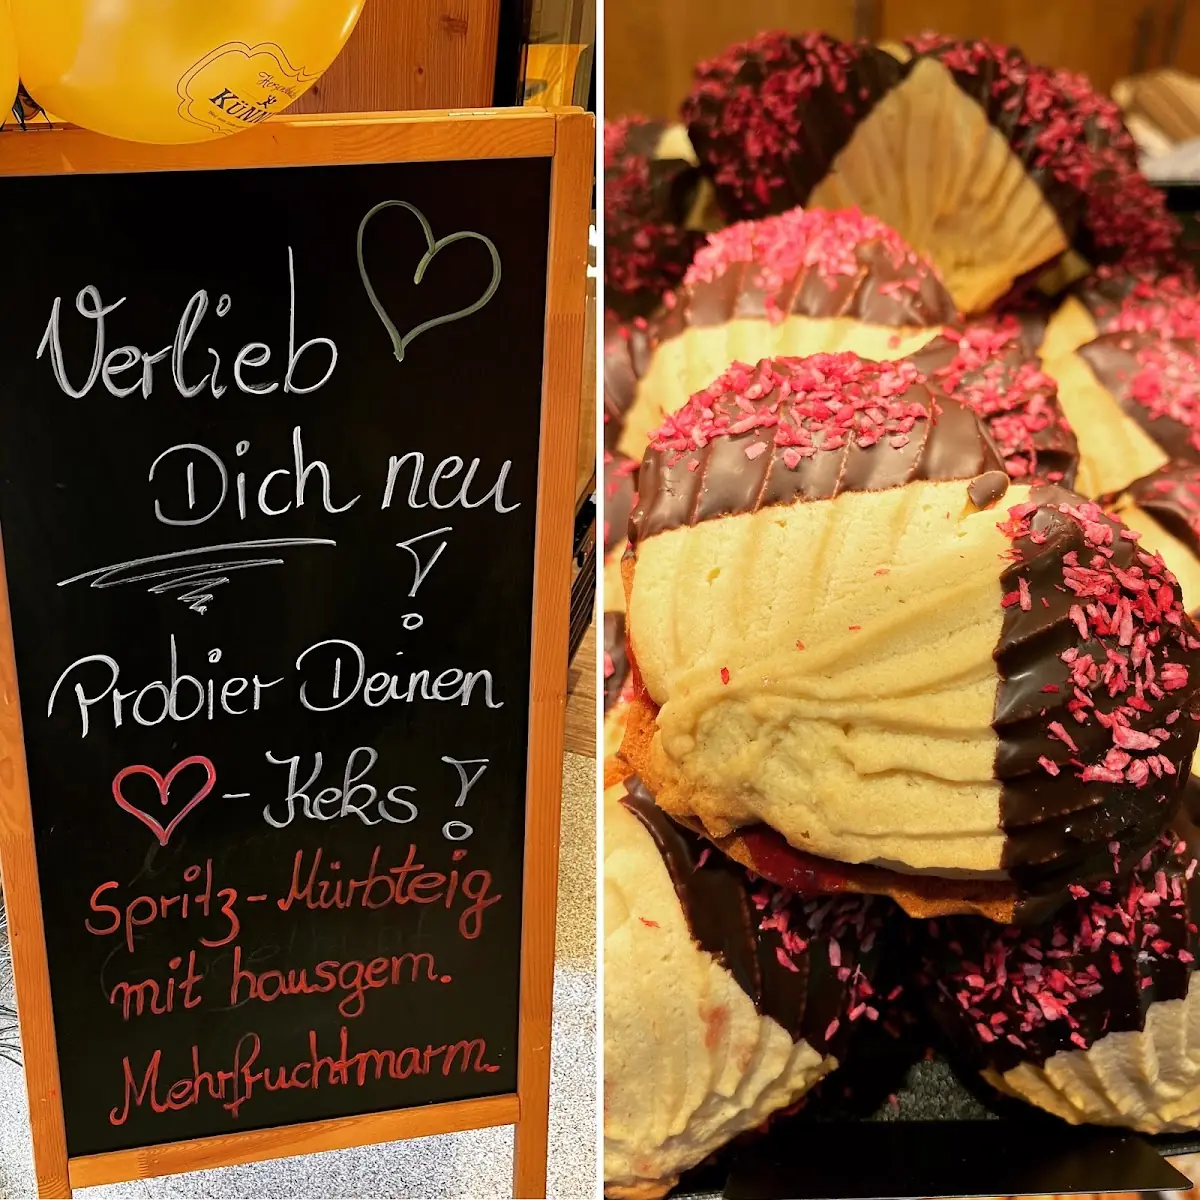 Verlieb
Dich neu
!
Probier Deinen
- Keks !
Spritz-Mürbteig
mit hausgem.
Mehrfruchtmarm.